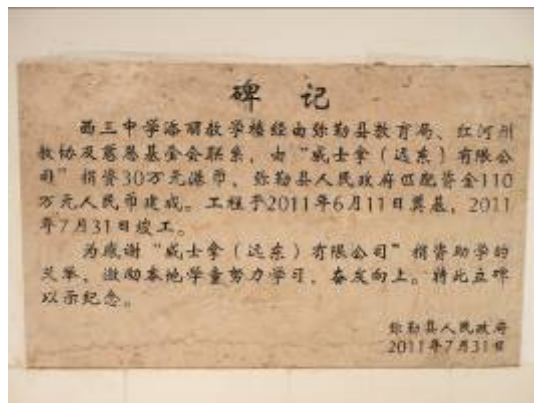 碑 记
西三中学添丽教学楼经由弥勒县教育局、红河州
教协及慈恩基金会联系，由“威士拿（远东）有限公
司”捐资30万元港币、弥勒县人民政府匹配资金110
万元人民币建成。工程于2011年6月11日奠基，2011
年7月31日竣工。
为感谢“威士拿（远东）有限公司”捐资助学的
义举，激励本地学童努力学习，奋发向上。特此立碑
以示纪念。
弥勒县人民政府
2011年7月31日